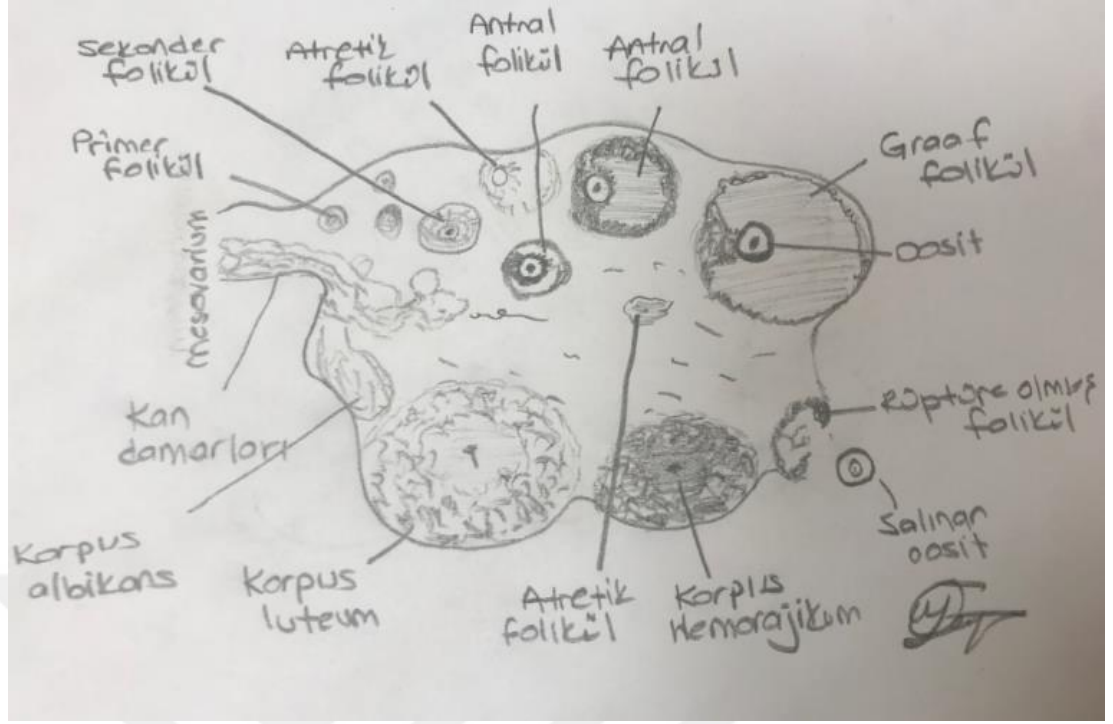 Sekonder
folikül
Atretik
folikül
Antral
folikül
Antral
folikül
Primer
folikül
Graaf
folikül
oosit
mesovarium
Kan
damarları
Rüptüre olmuş
folikül
Salınan
oosit
Korpus
albikans
Korpus
luteum
Atretik
folikül
Korpus
Hemorajikum